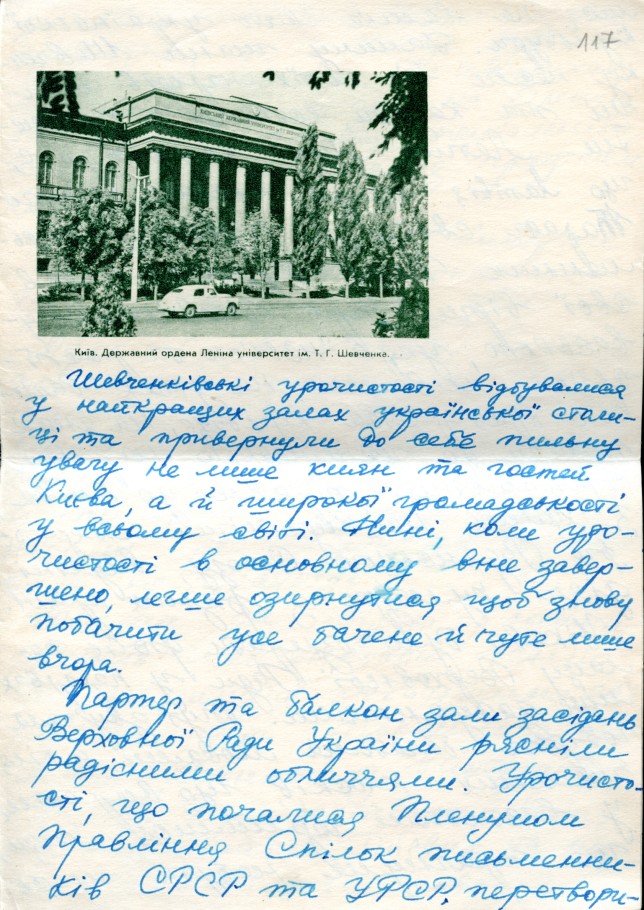 117
Київ. Державний ордена Леніна університет ім. Т. Г. Шевченка.
Шевченківські урочистості відбувалися
у найкращих залах української столи-
ці та привернули до себе пильну
увагу не лише киян та гостей
Києва, а й широкої громадськості
у всьому світі. Нині, коли уро-
чистості в основному вже завер-
шено, легше озирнутися щоб знову
побачити усе бачене й чуте лише
вчора.
Партер та балкон зали засідань
Верховної Ради України рясніли
радісними обличчями. Урочисто-
сті, що почалися Пленумом
Правління Спілок письменни-
ків СРСР та УРСР, перетвори-